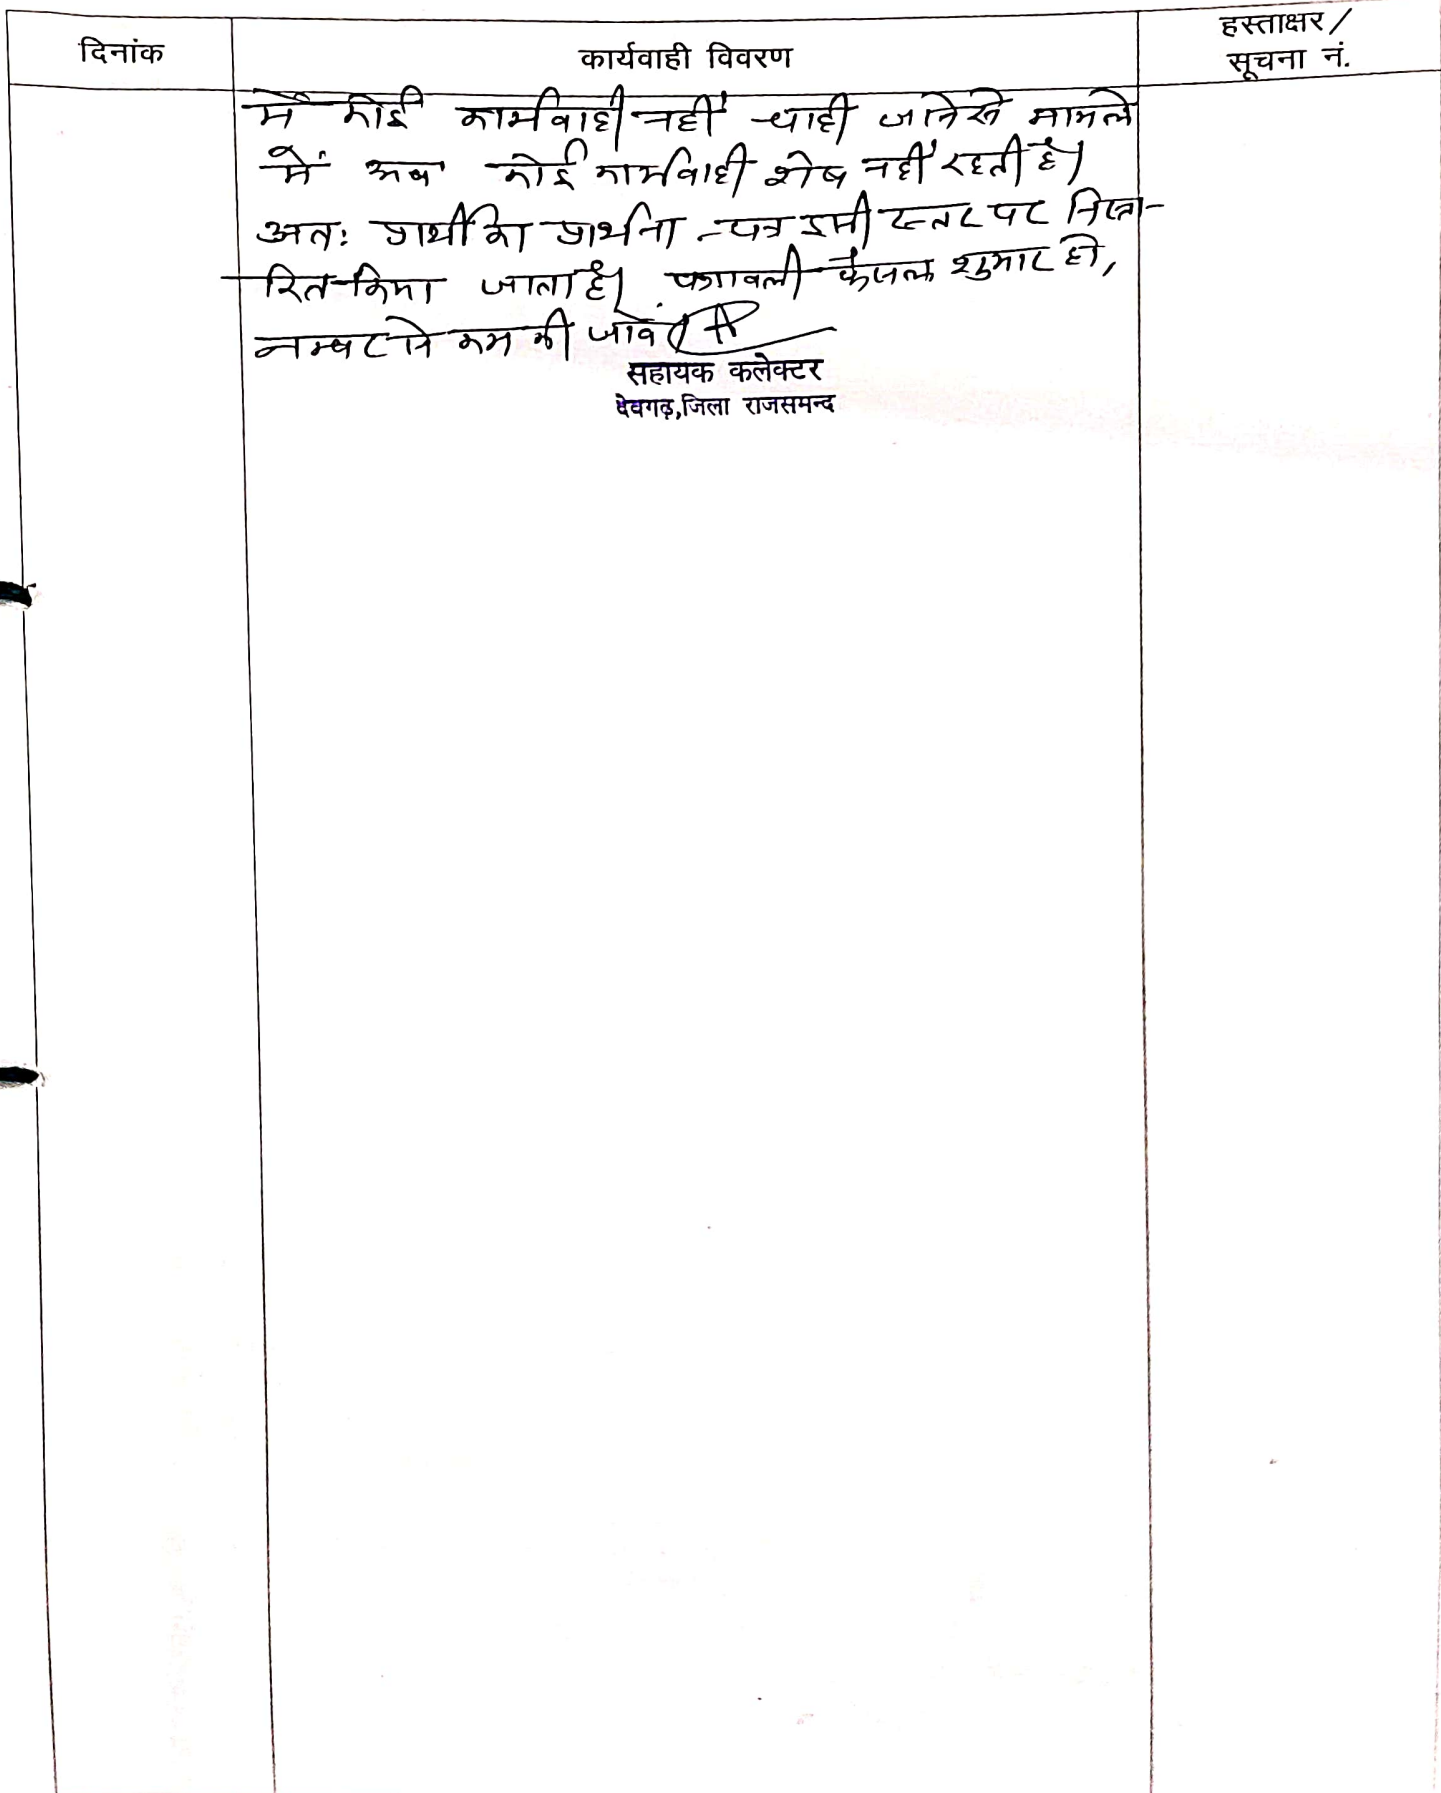 दिनांक
कार्यवाही विवरण
हस्ताक्षर /
सूचना नं.
में कोई कार्यवाही नहीं चाही जाने से मामले
में अब कोई कार्यवाही शेष नहीं रहती है।
अतः प्रार्थी का प्रार्थना-पत्र इसी स्तर पर निस्ता-
रित किया जाता है। पत्रावली फैसल शुमार हो,
नम्बर से कम की जावे।
सहायक कलेक्टर
देवगढ़,जिला राजसमन्द